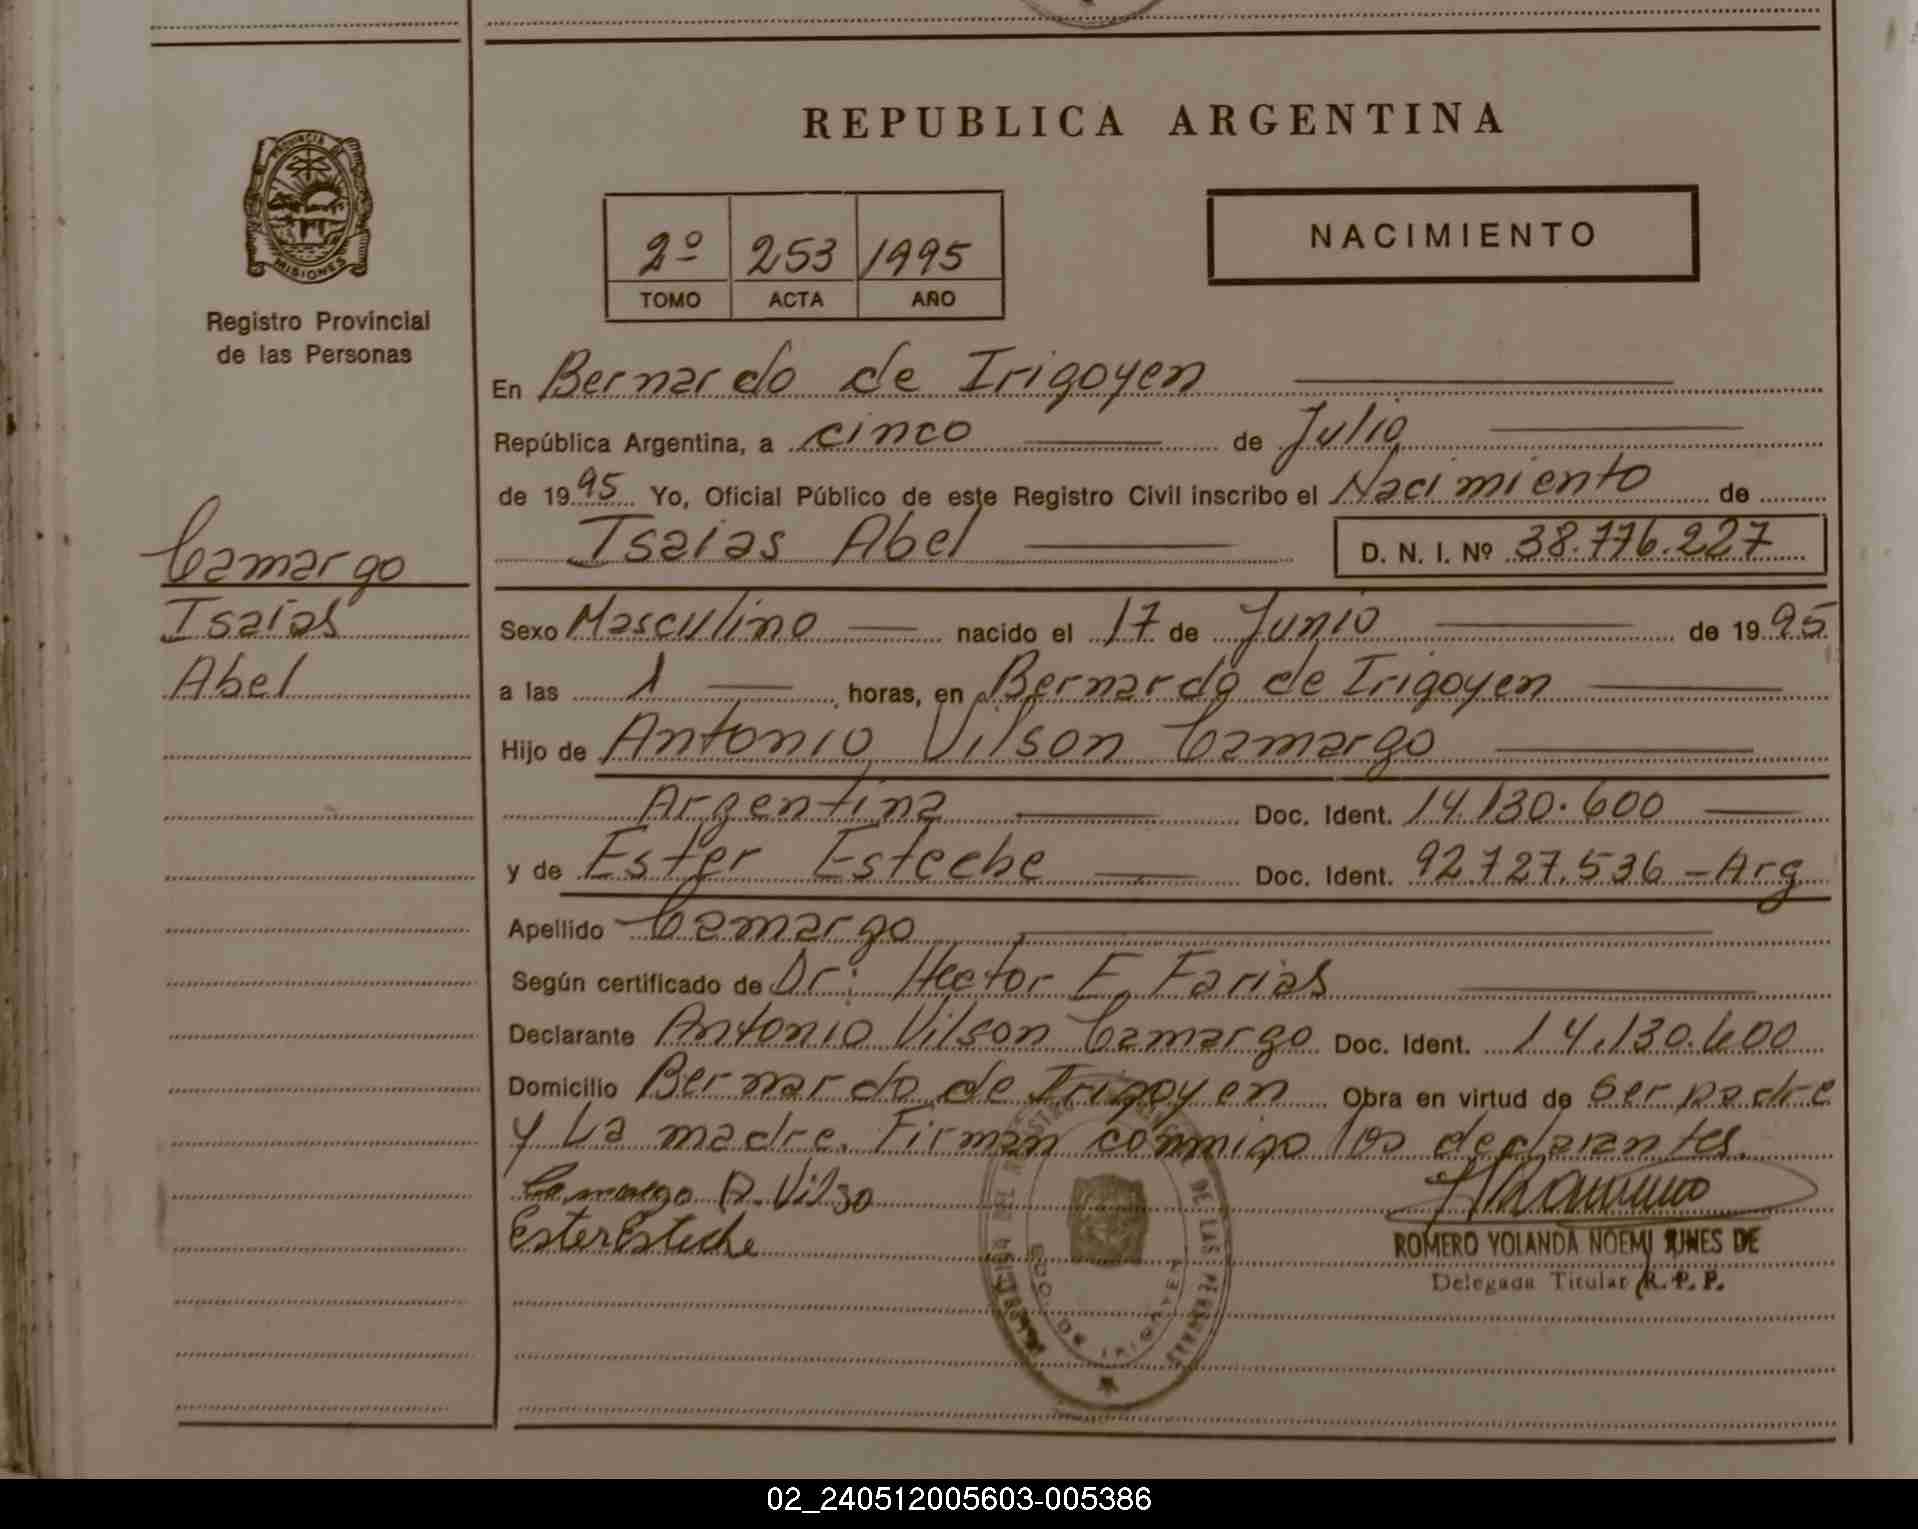 REPUBLICA ARGENTINA
PROVINCIA DE
MISIONES
Registro Provincial
de las Personas
2º 253 1995
TOMO ACTA AÑO
NACIMIENTO
En Bernardo de Irigoyen
República Argentina, a cinco de Julio
de 1995 Yo, Oficial Público de este Registro Civil inscribo el Nacimiento de
Isaias Abel D. N. I. Nº 38.776.227
Camargo
Isaías
Abel
Sexo Masculino nacido el 17 de Junio de 1995
a las 1 horas, en Bernardo de Irigoyen
Hijo de Antonio Vilson Camargo
Argentina Doc. Ident. 14.130.600
y de Ester Esteche Doc. Ident. 92.727.536 - Arg
Apellido Camargo
Según certificado de Dr: Hector E. Farias
Declarante Antonio Vilson Camargo Doc. Ident. 14.130.600
Domicilio Bernardo de Irigoyen Obra en virtud de ser padre
y La madre. Firman conmigo los declarantes.
Camargo A. Vilso
Ester Esteche
ROMERO YOLANDA NOEMI DE
Delegada Titular R. P. P.
DEL REGISTRO DE LAS PERSONAS
BDO. DE IRIGOYEN
02_240512005603-005386